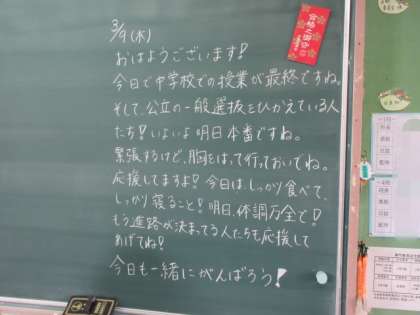 3/9(木)
おはようございます!
今日で中学校での授業が最終ですね。
そして、公立の一般選抜をひかえている人
たち!いよいよ明日本番ですね。
緊張するけど、胸をはって行っておいでね。
応援してますよ!今日は、しっかり食べて、
しっかり寝ること!明日、体調万全で!
もう進路が決まってる人たちも応援して
あげてね!
今日も一緒にがんばろう!